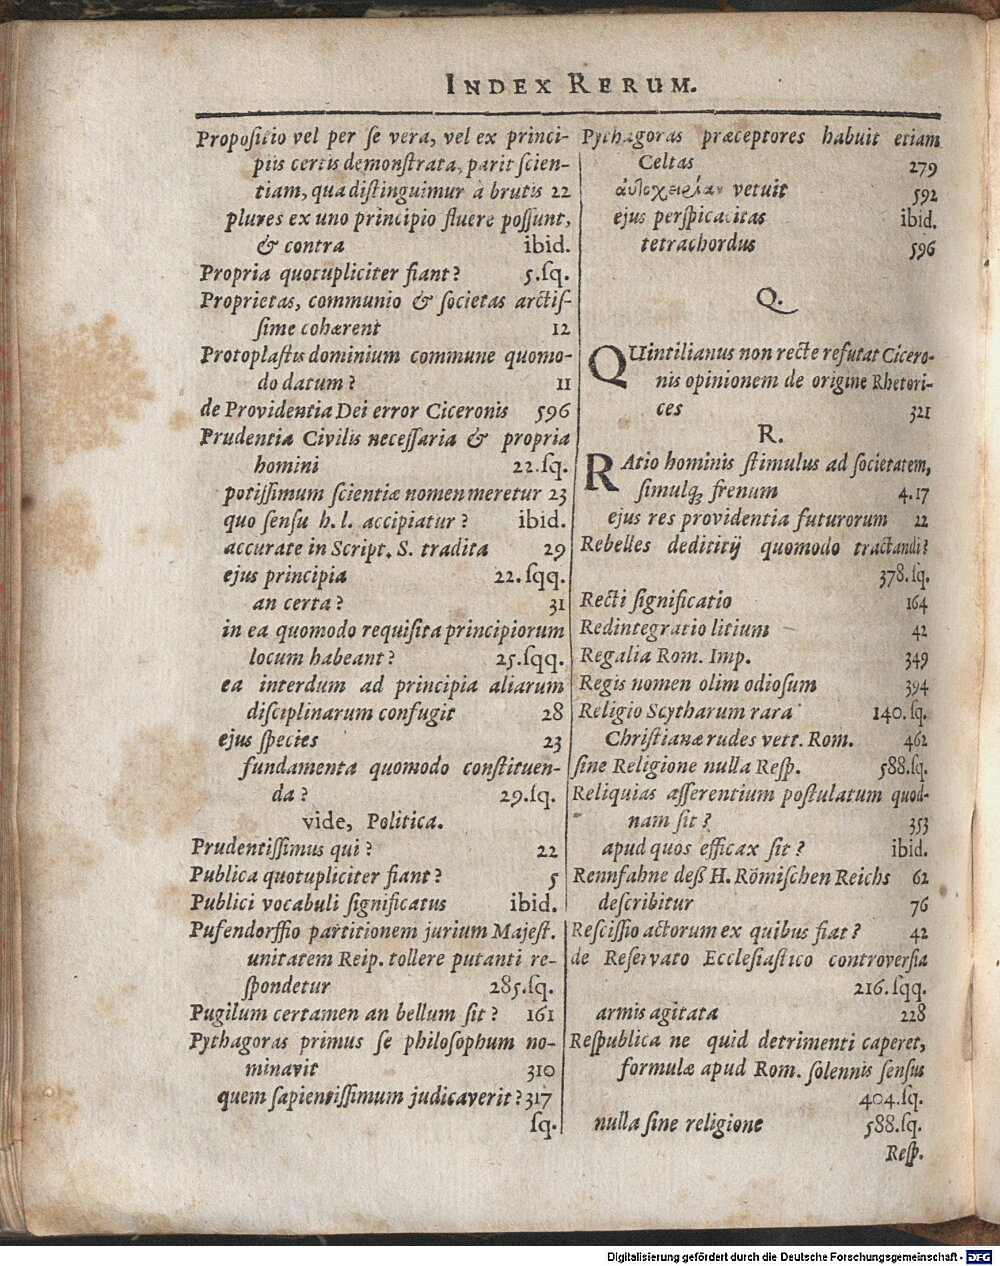 INDEX RERUM.
Propositio vel per se vera, vel ex princi-
piis certis demonstrata, parit scien-
tiam, qua distinguimur à brutis 22
plures ex uno principio fluere possunt,
& contra ibid.
Propria quotupliciter fiant? 5.sq.
Proprietas, communio & societas arctis-
sime cohærent 12
Protoplastus dominium commune quomo-
do datum? 11
de Providentia Dei error Ciceronis 596
Prudentia Civilis necessaria & propria
homini 22.sq.
potissimum scientiæ nomen meretur 23
quo sensu h. l. accipiatur? ibid.
accurate in Script. S. tradita 29
ejus principia 22.sqq.
an certa? 31
in ea quomodo requisita principiorum
locum habeant? 25.sqq.
ea interdum ad principia aliarum
disciplinarum confugit 28
ejus species 23
fundamenta quomodo constituen-
da? 29.sq.
vide, Politica.
Prudentissimus qui? 22
Publica quotupliciter fiant? 5
Publici vocabuli significatus ibid.
Pufendorffio partitionem jurium Majest.
unitatem Reip. tollere putanti re-
spondetur 285.sq.
Pugilum certamen an bellum sit? 161
Pythagoras primus se philosophum no-
minavit 310
quem sapientissimum judicaverit? 317
sq.
Pythagoras præceptores habuit etiam
Celtas 279
αὐτοχειρίαν vetuit 592
ejus perspicacitas ibid.
tetrachordus 596
Q.
QUintilianus non recte refutat Cicero-
nis opinionem de origine Rhetori-
ces 321
R.
RAtio hominis stimulus ad societatem,
simulq; frenum 4.17
ejus res providentia futurorum 22
Rebelles dedititij quomodo tractandi?
378.sq.
Recti significatio 164
Redintegratio litium 42
Regalia Rom. Imp. 349
Regis nomen olim odiosum 394
Religio Scytharum rara 140.sq.
Christianæ rudes vett. Rom. 462
sine Religione nulla Resp. 588.sq.
Reliquias asserentium postulatum quod-
nam sit? 353
apud quos efficax sit? ibid.
Rennfahne deß H. Römischen Reichs 62
describitur 76
Rescissio actorum ex quibus fiat? 42
de Reservato Ecclesiastico controversia
216.sqq.
armis agitata 228
Respublica ne quid detrimenti caperet,
formulæ apud Rom. solennis sensus
404.sq.
nulla sine religione 588.sq.
Resp.
Digitalisierung gefördert durch die Deutsche Forschungsgemeinschaft - DFG